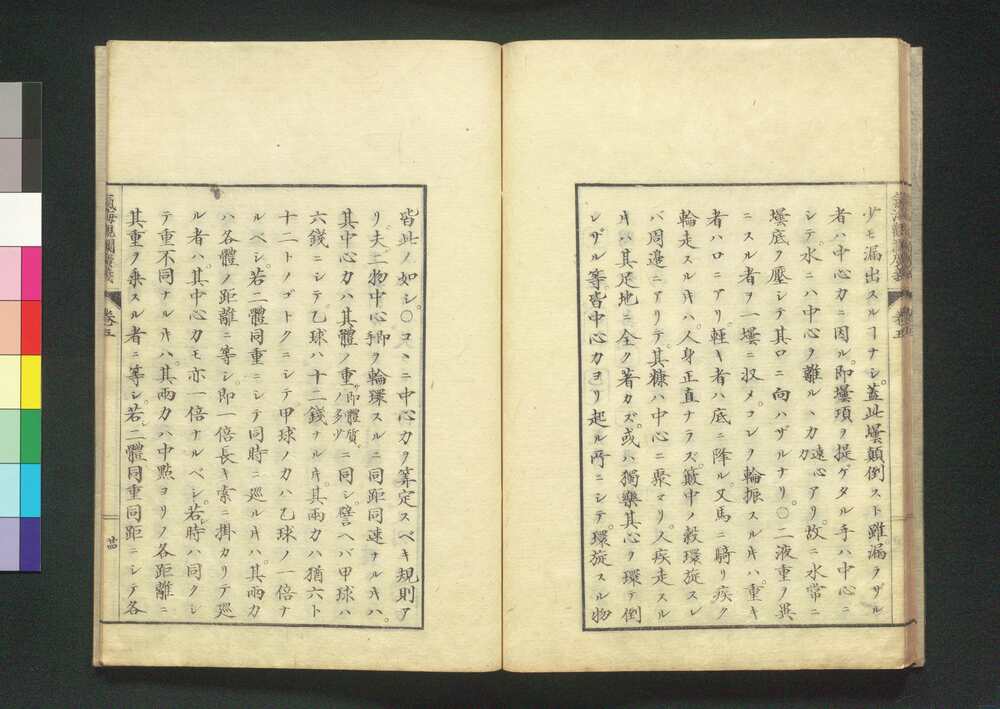 少モ漏出スルヿナシ。蓋此壜顛倒スト雖漏ラザル
者ハ中心力ニ因ル。即壜項ヲ提ゲタル手ハ中心ニ
シテ。水ニハ中心ヲ離ルヽ力遠心力アリ。故ニ水常ニ
壜底ヲ壓シテ其口ニ向ハザルナリ。〇二液重ノ異
ニスル者ヲ一壜ニ収メ。コレヲ輪振スルキハ。重キ
者ハ口ニアリ。軽キ者ハ底ニ降ル。又馬ニ騎リ疾ク
輪走スルキハ。人身正直ナラズ。簸中ノ穀環旋スレ
バ周邉ニアリテ。其糠ハ中心ニ聚マリ。人疾走スル
キハ其足地ニ全ク著カズ。或ハ獨樂其心ヲ環テ倒
レザル等。皆中心力ヨリ起ル所ニシテ。環旋スル物
卷五
皆此ノ如シ。〇コヽニ中心力ヲ筭定スベキ規則ア
リ。夫二物中心即手ヲ輪環スルニ同距同速ナルキハ。
其中心力ハ其體ノ重サ即體質ノ多少。ニ同シ。譬ヘバ甲球ハ
六錢ニシテ乙球ハ十二錢ナルキ。其兩力ハ猶六ト
十二トノゴトクニシテ甲球ノ力ハ乙球ノ一倍ナ
ルベシ。若二體同重ニシテ同時ニ巡ルキハ。其兩力
ハ各體ノ距離ニ等シ。即一倍長キ索ニ掛カリテ巡
ル者ハ。其中心力モ亦一倍ナルベシ。若シ時ハ同クシ
テ重不同ナルキハ。其兩力ハ中點ヨリノ各距離ニ
其重ヲ乗スル者ニ等シ。若二體同重同距ニシテ各
氣海觀瀾廣義
卷五
廿四